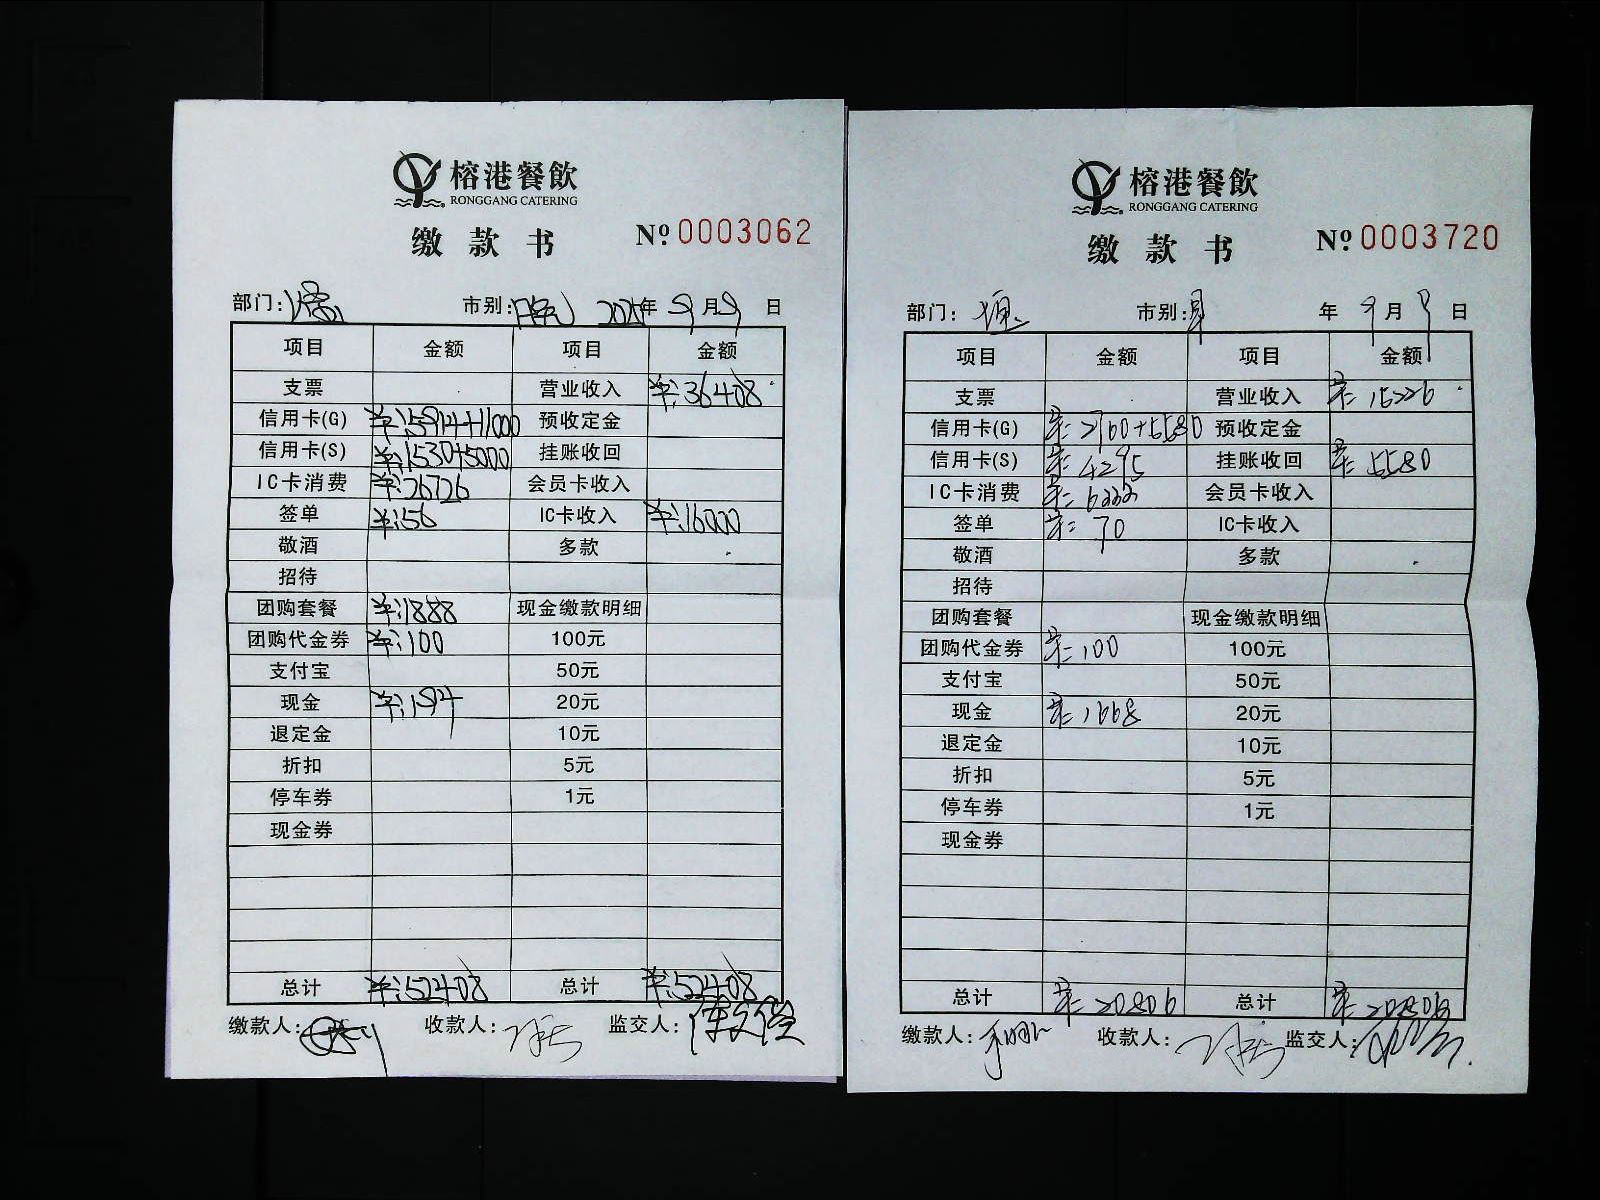 榕港餐飲
RONGGANG CATERING
缴款书 № 0003062
部门: 市别: 2025年 9月9日
项目 金额 项目 金额
支票 营业收入 ¥:36408
信用卡(G) ¥:5914+11000 预收定金
信用卡(S) ¥:1530+5000 挂账收回
IC卡消费 ¥:26726 会员卡收入
签单 ¥:56 IC卡收入 ¥:16000
敬酒 多款
招待
团购套餐 ¥:1888 现金缴款明细
团购代金券 ¥:100 100元
支付宝 50元
现金 ¥:194 20元
退定金 10元
折扣 5元
停车券 1元
现金券
总计 ¥:52408 总计 ¥:52408
缴款人: 收款人: 监交人:
榕港餐飲
RONGGANG CATERING
缴款书 № 0003720
部门: 市别: 年 9月9日
项目 金额 项目 金额
支票 营业收入 ¥:15226
信用卡(G) ¥:2760+5580 预收定金
信用卡(S) ¥:4295 挂账收回 ¥:5580
IC卡消费 ¥:6333 会员卡收入
签单 ¥:70 IC卡收入
敬酒 多款
招待
团购套餐 现金缴款明细
团购代金券 ¥:100 100元
支付宝 50元
现金 ¥:1668 20元
退定金 10元
折扣 5元
停车券 1元
现金券
总计 ¥:20806 总计 ¥:20806
缴款人: 收款人: 监交人: